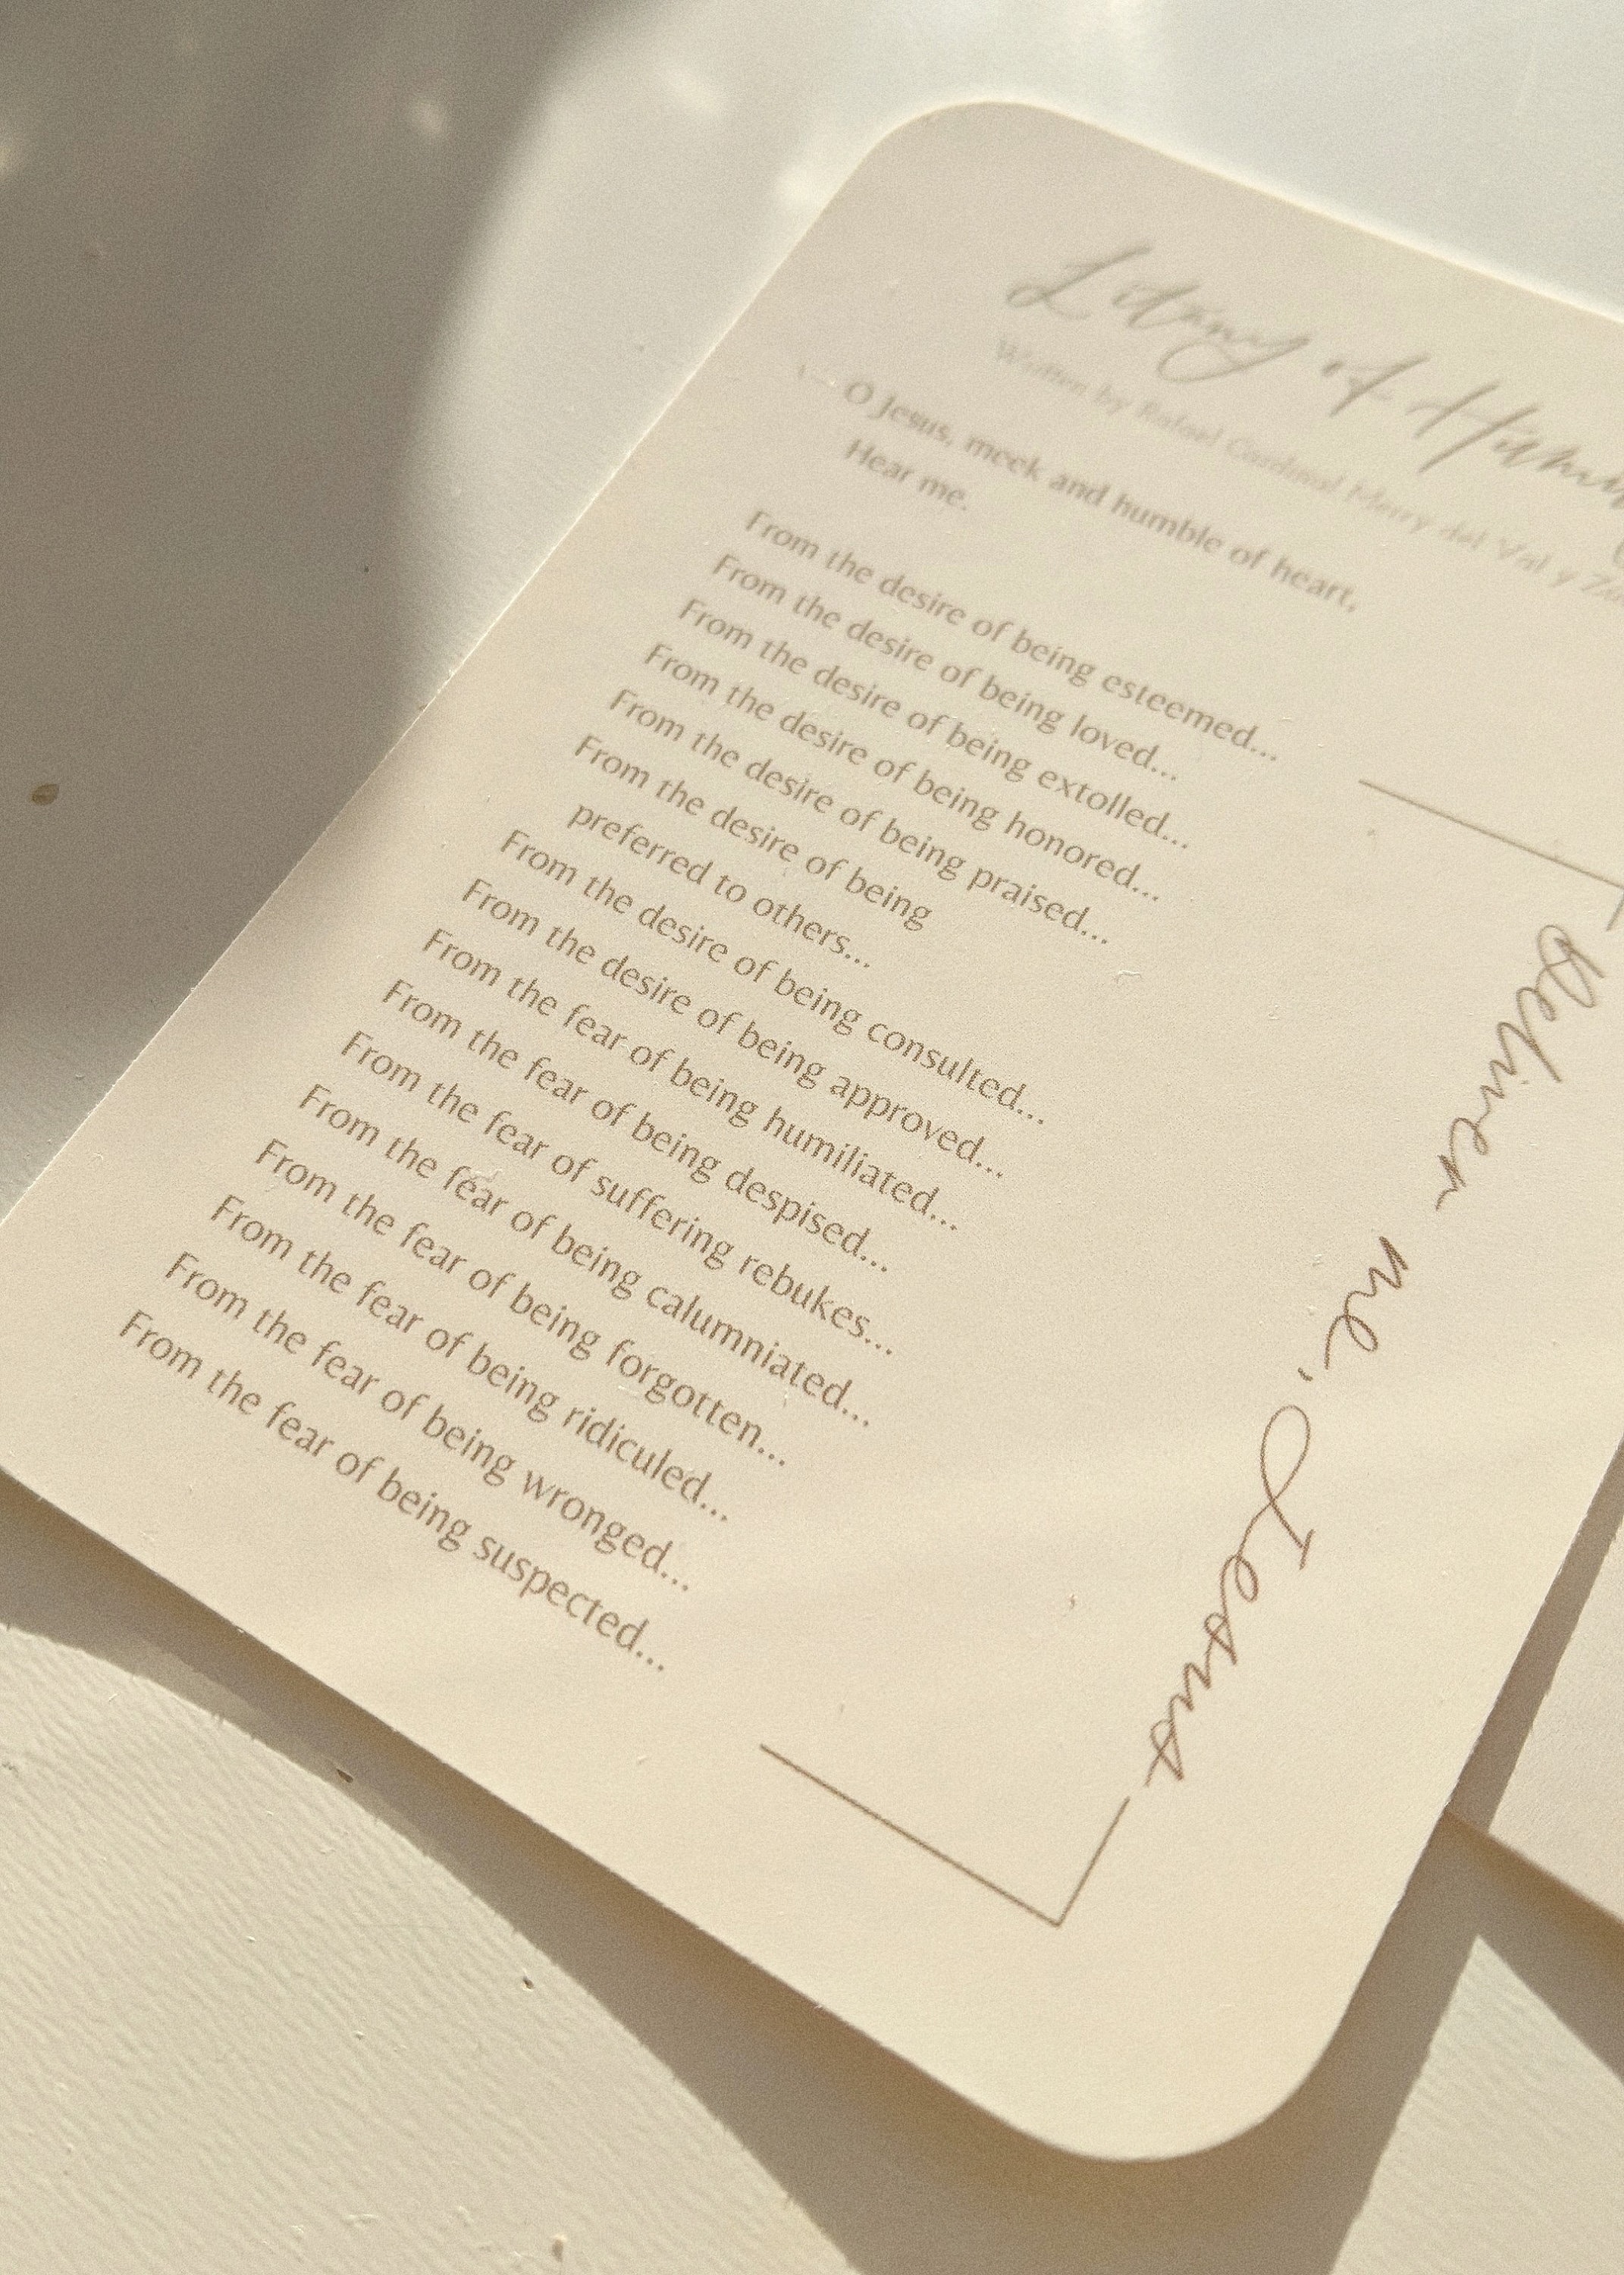 Litany of
Written by Rafael Cardinal Merry del Val y
O Jesus, meek and humble of heart,
Hear me.
From the desire of being esteemed...
From the desire of being loved...
From the desire of being extolled...
From the desire of being honored...
From the desire of being praised...
From the desire of being
preferred to others...
From the desire of being consulted...
From the desire of being approved...
From the fear of being humiliated...
From the fear of being despised...
From the fear of suffering rebukes...
From the fear of being calumniated...
From the fear of being forgotten...
From the fear of being ridiculed...
From the fear of being wronged...
From the fear of being suspected...
Deliver me, Jesus